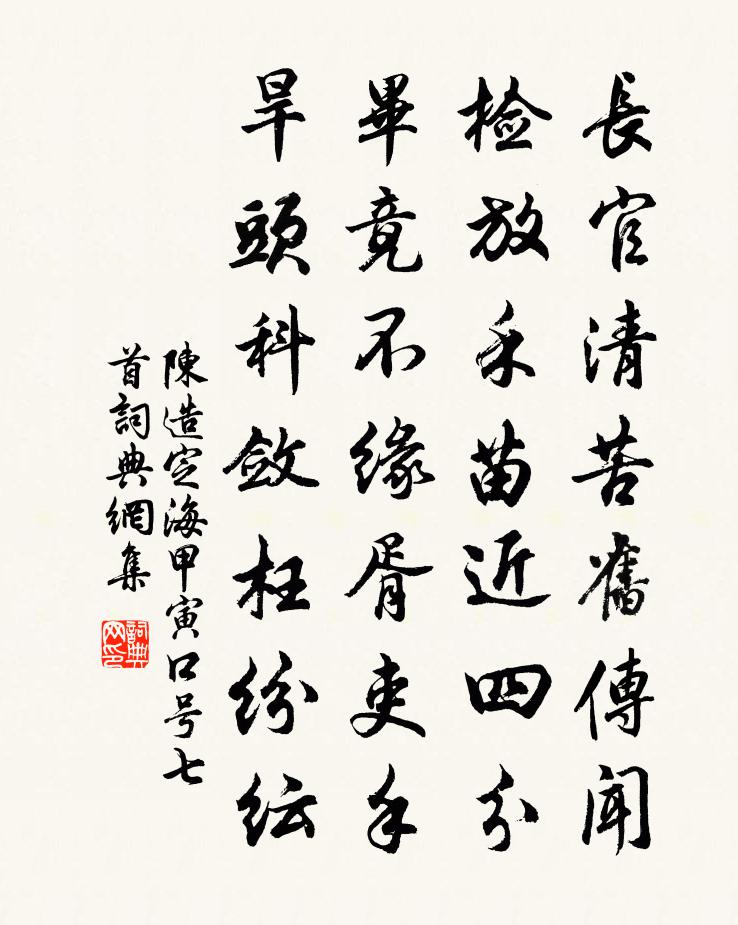 長官清苦舊傳聞
檢放禾苗近四分
畢竟不緣胥吏手
旱頭科斂枉紛紜
陳造定海甲寅口号七
首詞典網集
詞典网印